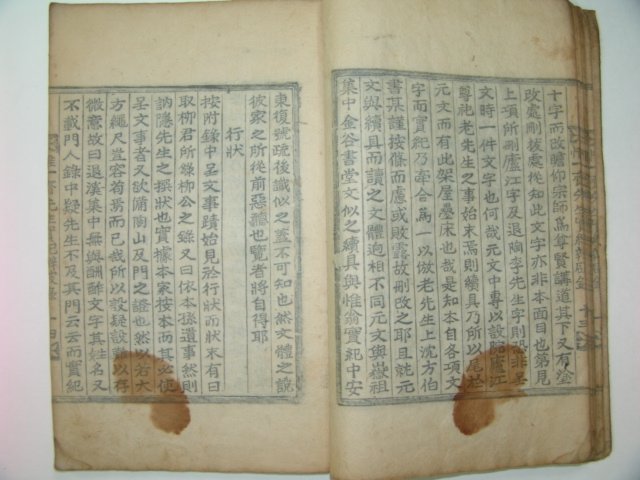 十字而改瞻仰宗師爲尊賢講道其下又有
改處刪拔處從知此文字亦非本面目也第見
上項所刪廬江字及退陶李先生字則恐非呈
文時一件文字也何哉元文中專以設院廬江
尊祀老先生之事始末焉則續具乃所以尾於
元文而有此架屋疊床也哉是知本自各項文
字而實紀乃牽合爲一以倣老先生上沈方伯
書某謹按條而慮或敗露故刪改之耶且就元
文與續具而讀之文體逈相不同元文與嶽祖
集中金谷書堂文似之續具與惟翁實紀中安
東復號疏後識似之蓋不可知也然文體之說
彼家之所從前惡聽也覽者將自得耶
行狀
按附錄中呈文事蹟始見於行狀而狀末有曰
取柳君所錄柳公之錄又曰依本孫遺事然則
訥隱先生之撰狀也實據本家按本而其必使
呈文事者又欲備陶山及門之證也然以若大
方繩尺豈容苟焉而已哉所以設疑設難以存
微意故曰退漢集中無與酬酢文字其姓名又
不載門人錄中疑先生不及其門云云而實紀